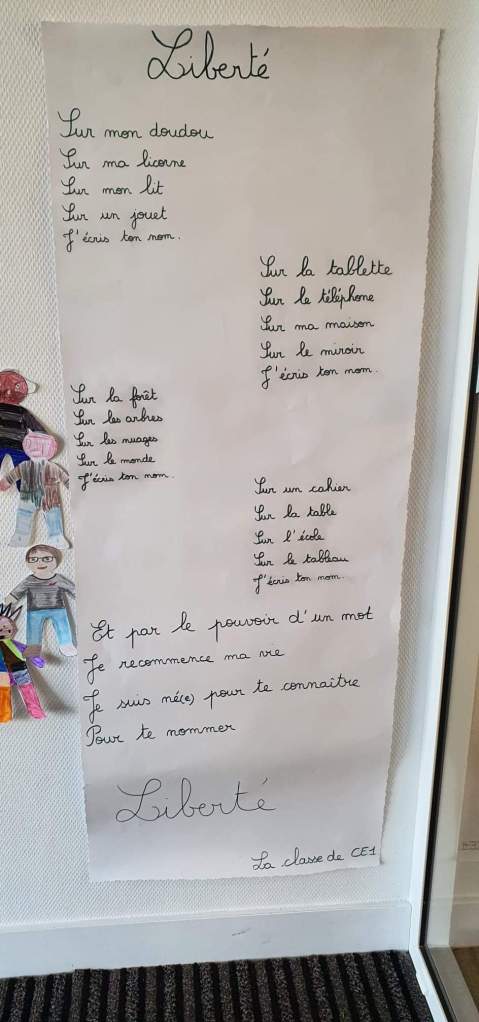 Liberté
Sur mon doudou
Sur ma licorne
Sur mon lit
Sur un jouet
J'écris ton nom.
Sur la tablette
Sur le téléphone
Sur ma maison
Sur le miroir
J'écris ton nom.
Sur la forêt
Sur les arbres
Sur les nuages
Sur le monde
J'écris ton nom.
Sur un cahier
Sur la table
Sur l'école
Sur le tableau
J'écris ton nom.
Et par le pouvoir d'un mot
Je recommence ma vie
Je suis né(e) pour te connaitre
Pour te nommer
Liberté
La classe de CE1